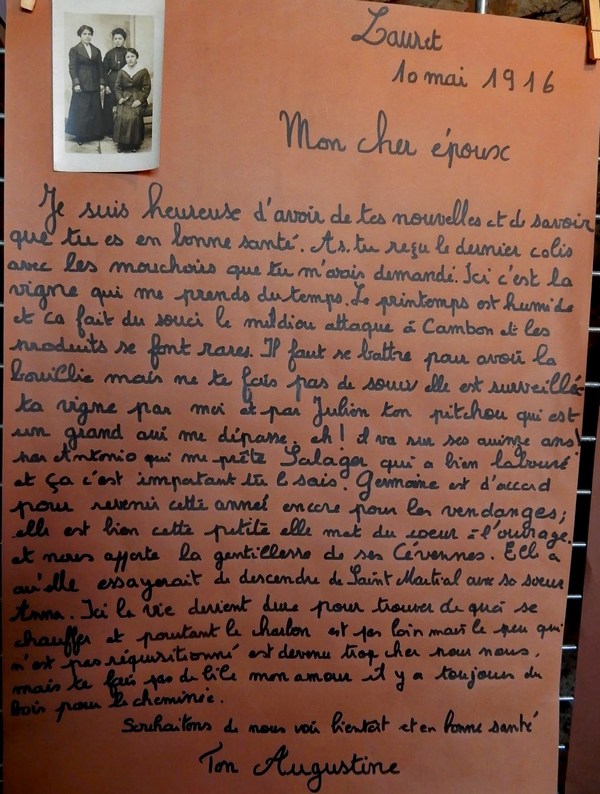 Lauret
10 mai 1916
Mon cher époux
Je suis heureuse d'avoir de tes nouvelles et de savoir
que tu es en bonne santé. As.tu reçu le dernier colis
avec les mouchoirs que tu m'avais demandé. Ici c'est la
vigne qui me prends du temps. Le printemps est humide
et ca fait du souci le mildiou attaque à Cambon et les
produits se font rares. Il faut se battre pour avoir la
bouillie mais ne te fais pas de souci elle est surveillée
ta vigne par moi et par Julien ton pitchou qui est
un grand qui me dépasse, eh! il va sur ses quinze ans!
par Antonio qui me prête Salager qui a bien labouré
et ça c'est important tu le sais. Germaine est d'accord
pour revenir cette année encore pour les vendanges;
elle est bien cette petite elle met du coeur à l'ouvrage
et nous apporte la gentillesse de ses Cévennes. Elle a
qu'elle essayerait de descendre de Saint Martial avec sa soeur
Anna. Ici la vie devient dure pour trouver de quoi se
chauffer et pourtant le charbon est pas loin mais le peu qui
n'est pas réquisitionné est devenu trop cher pour nous,
mais te fais pas de bile mon amour il y a toujours du
bois pour la cheminée.
Souhaitons de nous voir bientôt et en bonne santé
Ton Augustine